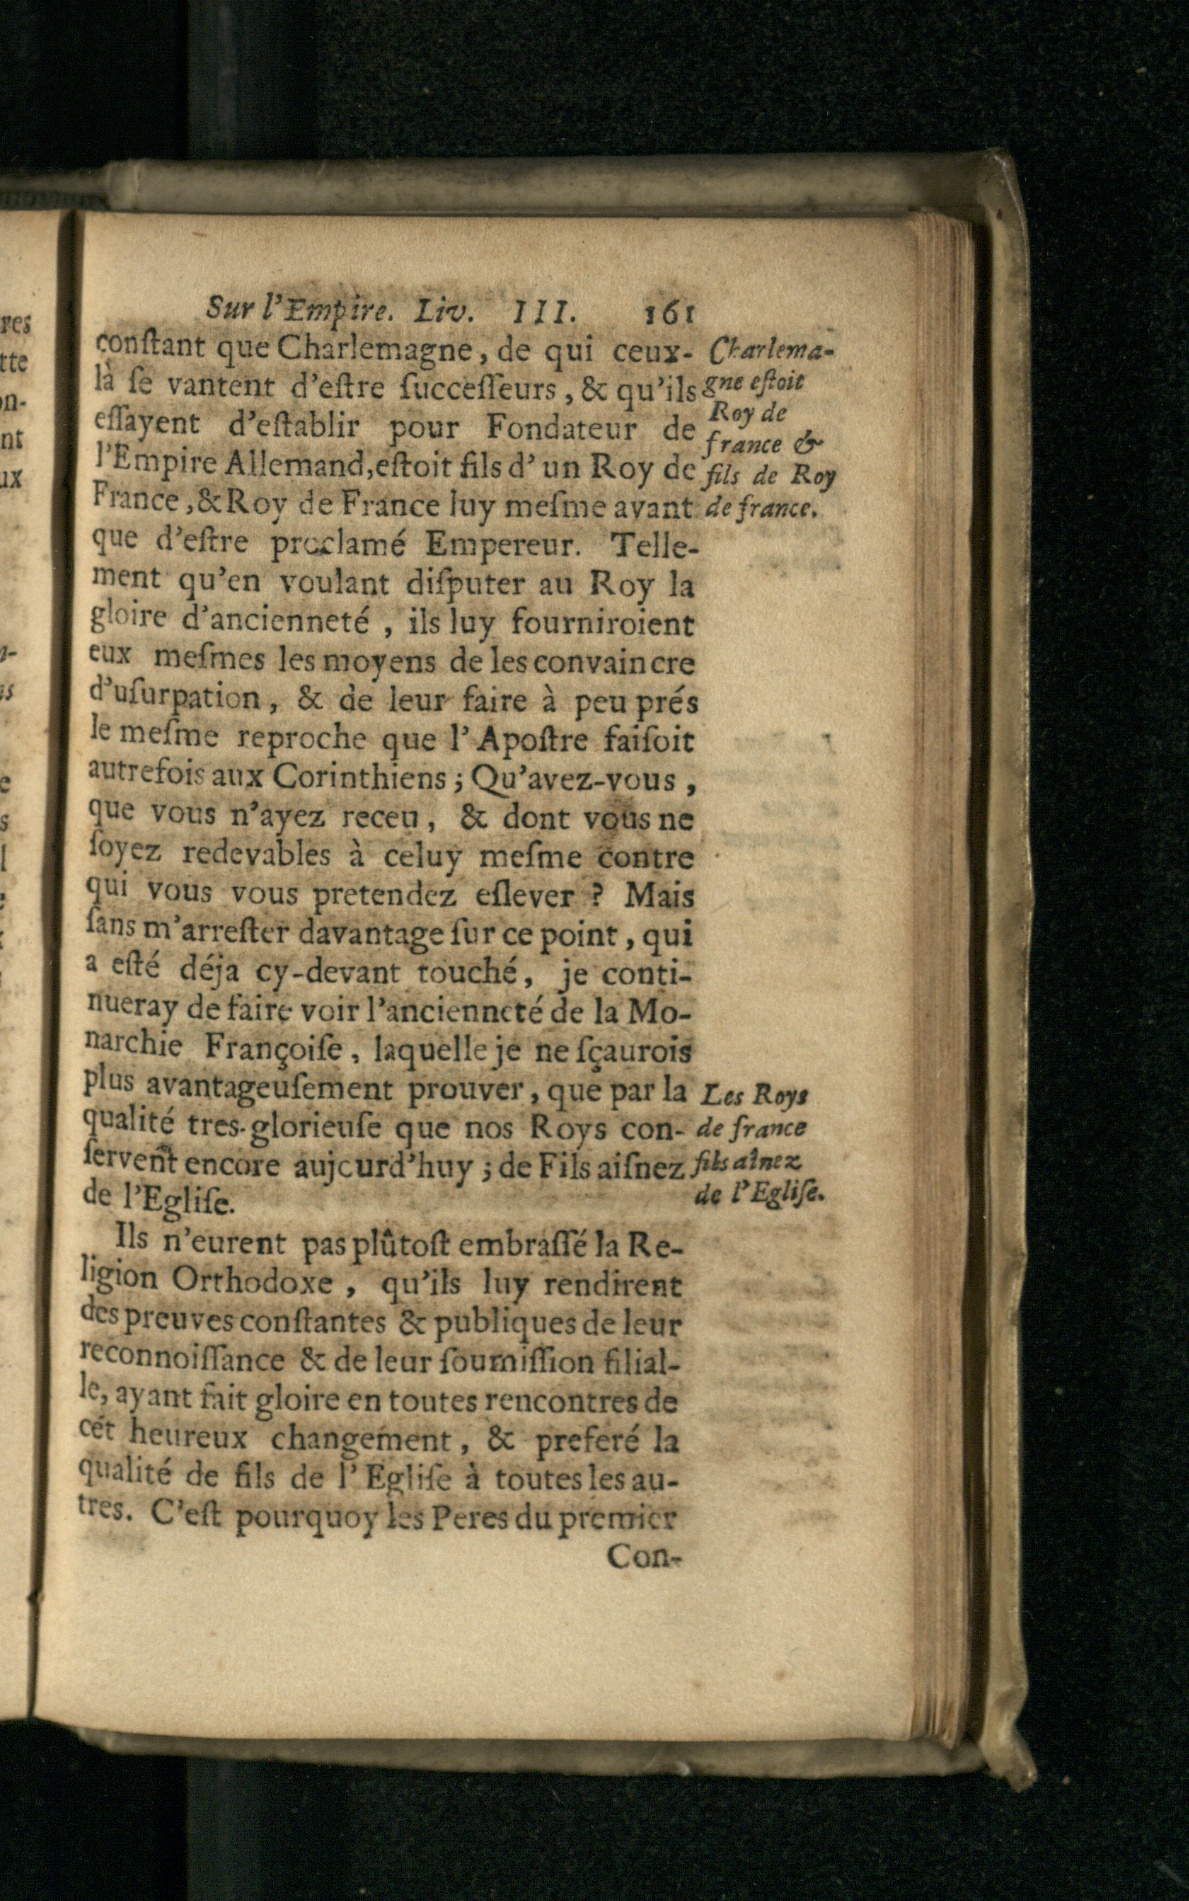 Sur l'Empire. Liv. III. 161
conſtant que Charlemagne, de qui ceux-
là ſe vantent d'eſtre ſucceſſeurs, & qu'ils
eſſayent d'eſtablir pour Fondateur de
l'Empire Allemand, eſtoit fils d' un Roy de
France, & Roy de France luy meſme avant
que d'eſtre proclamé Empereur. Telle-
ment qu'en voulant diſputer au Roy la
gloire d'ancienneté, ils luy fourniroient
eux meſmes les moyens de les convaincre
d'uſurpation, & de leur faire à peu prés
le meſme reproche que l' Apoſtre faiſoit
autrefois aux Corinthiens; Qu'avez-vous,
que vous n'ayez receu, & dont vous ne
ſoyez redevables à celuy meſme contre
qui vous vous pretendez eſlever? Mais
ſans m'arreſter davantage ſur ce point, qui
a eſté déja cy-devant touché, je conti-
nueray de faire voir l'ancienneté de la Mo-
narchie Françoiſe, laquelle je ne ſçaurois
plus avantageuſement prouver, que par la
qualité tres-glorieuſe que nos Roys con-
ſervent encore aujourd'huy; de Fils aiſnez
de l'Egliſe.
Ils n'eurent pas plûtoſt embraſſé la Re-
ligion Orthodoxe, qu'ils luy rendirent
des preuves conſtantes & publiques de leur
reconnoiſſance & de leur ſoumiſſion filial-
le, ayant fait gloire en toutes rencontres de
cét heureux changement, & preferé la
qualité de fils de l' Egliſe à toutes les au-
tres. C'eſt pourquoy les Peres du premier
Con-
Charlema-
gne eſtoit
Roy de
france &
fils de Roy
de france.
Les Roys
de france
fils aînez
de l'Egliſe.